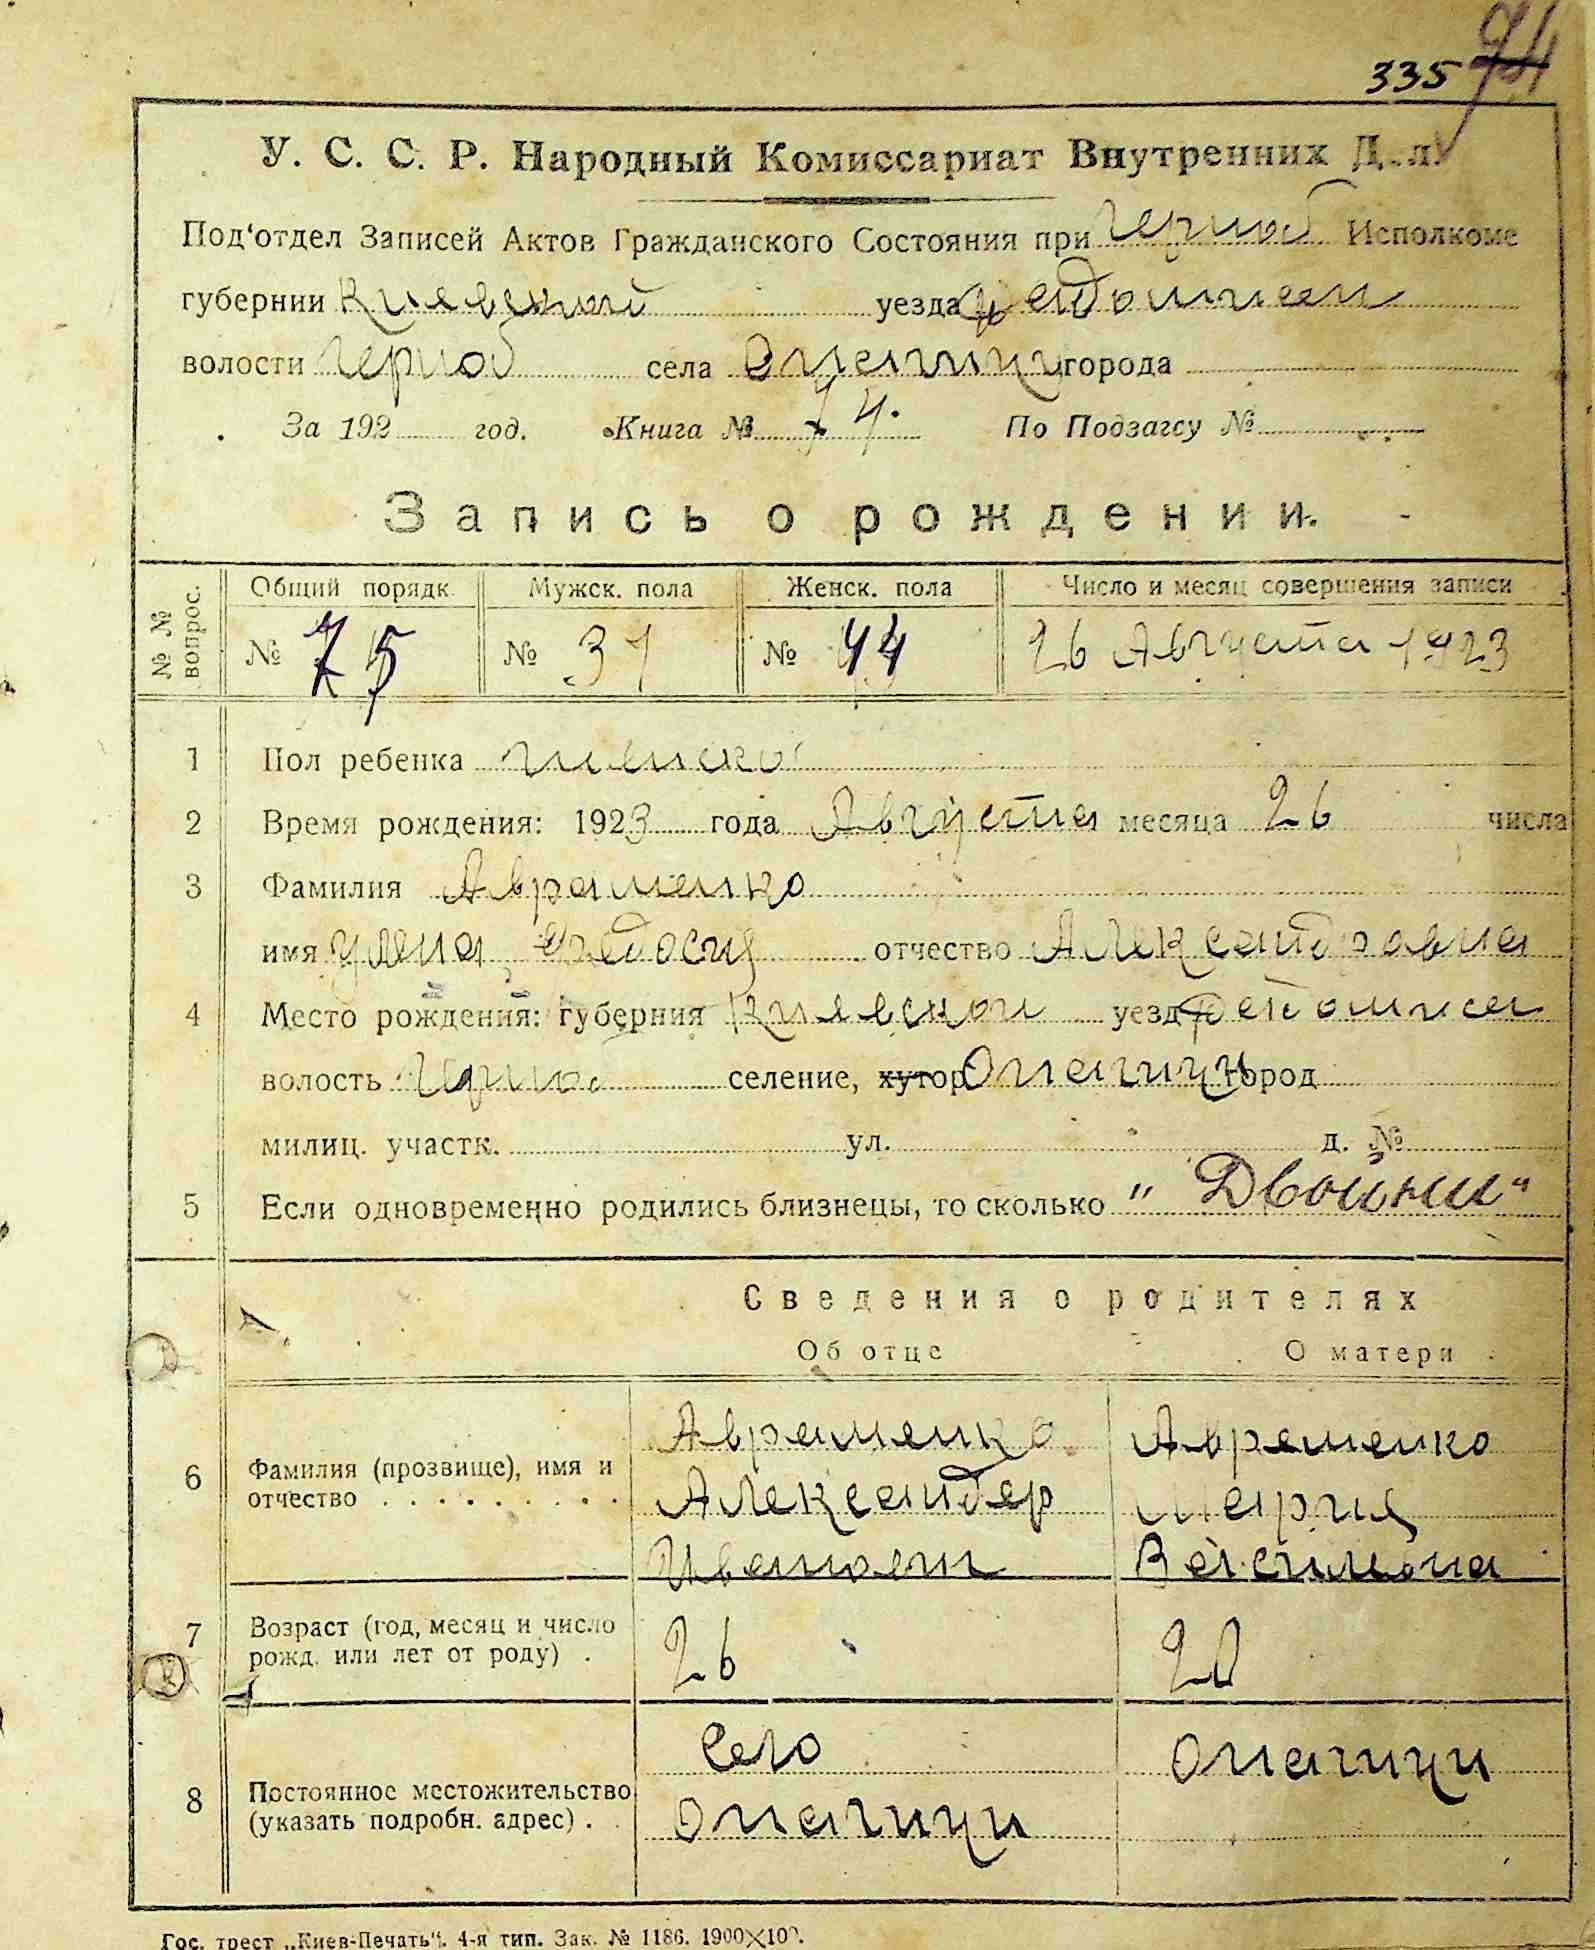 335 74
У. С. С. Р. Народный Комиссариат Внутренних Д.л.
Под'отдел Записей Актов Гражданского Состояния при Черноб Исполкоме
губернии Киевской уезда
волости Черноб села Опачичи города
За 192 год. Книга № 74. По Подзагсу №
Запись о рождении.
№ № вопрос. Общий порядк. Мужск. пола Женск. пола Число и месяц совершения записи
№ 75 № 31 № 44 26 Августа 1923
1 Пол ребенка женско
2 Время рождения: 1923 года Августа месяца 26 числа
3 Фамилия Авраменко
имя Улена, Федосия отчество Александровна
4 Место рождения: губерния Киевской уезд
волость Черноб селение, хутор Опачичи город
милиц. участк. ул. д. №
5 Если одновременно родились близнецы, то сколько "Двойни"
Сведения о родителях
Об отце О матери
Авраменко Авраменко
6 Фамилия (прозвище), имя и отчество . . . . . . . . . Александер Мария
Иванов
7 Возраст (год, месяц и число рожд. или лет от роду) . 26 20
Село Опачичи
8 Постоянное местожительство (указать подробн. адрес) . Опачичи
Гос. трест „Киев-Печать“. 4-я тип. Зак. № 1186. 1900×100.